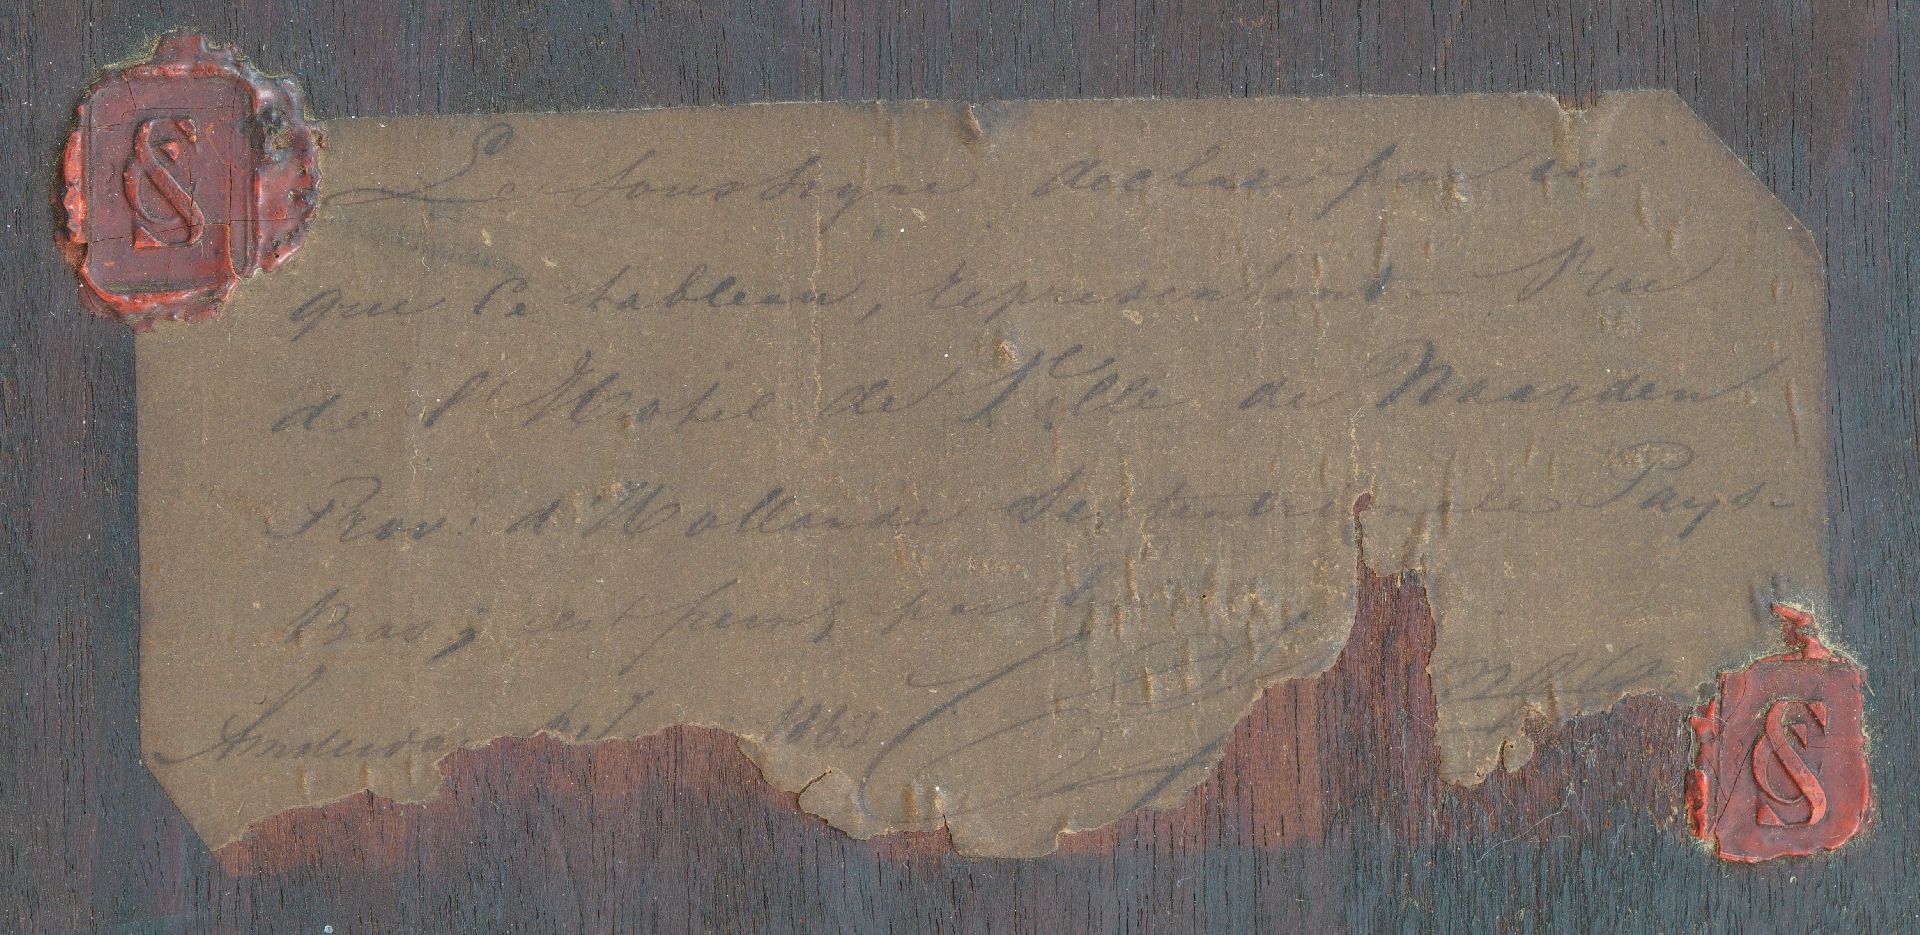 Le Soussigne declare par ici
que Ce tableau, représentant Vue
de l'Hotel de Ville de Naarden
Prov. d'Hollande Septentrionale Pays-
Bas, est peint par
Amsterdam 1863
CS
CS